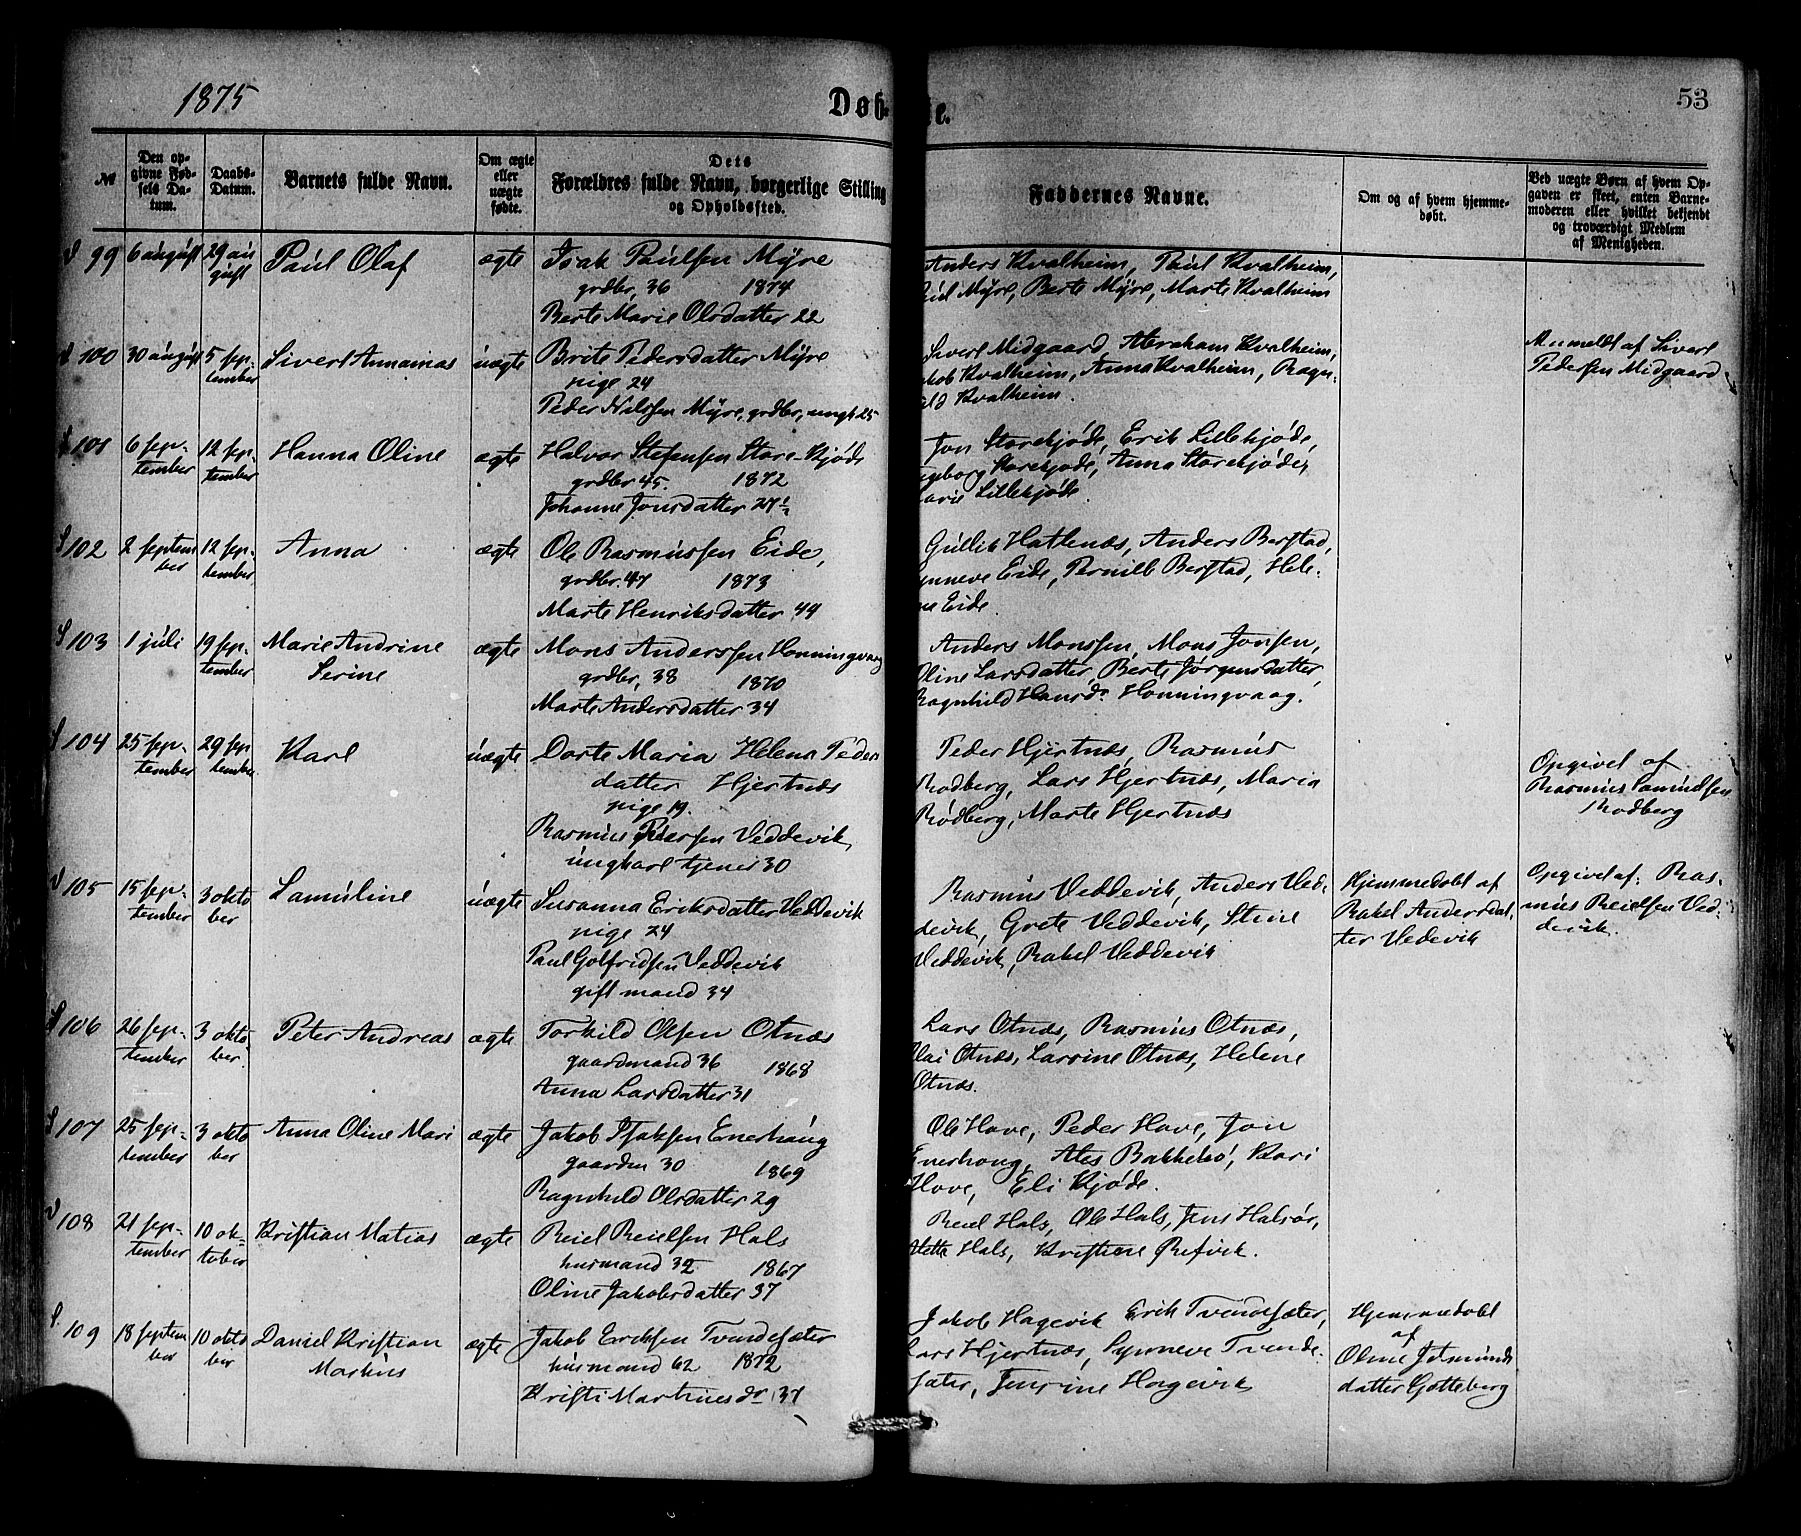 1875
Døb-
te.
53
№
Den op-
givne Fød-
sels Da-
tum.
Daabs-
Datum.
Barnets fulde Navn.
Om ægte
eller
uægte
fødte.
Dets
Forældres fulde Navn, borgerlige Stilling
og Opholdssted.
Faddernes Navne.
Om og af hvem hjemme-
døbt.
Ved uægte Børn af hvem Op-
gaven er skeet, enten Barne-
moderen eller hvilket bekjendt
og troværdigt Medlem
af Menigheden.
99 6 august 29 au
gust
Paul Olaf
ægte
Isak Paulsen Myre
grdbr, 36 1874
Berte Marie Olsdatter 22
Anders Kvalheim, Paul Kvalheim,
Myre, Berte Myre, Marte Kvalheim
100 30 august 5 sep-
tember
Sivert Annanias
uægte
Brite Pedersdatter Myre
pige 24
Peder Nilssen Myre, grdbr, ungk 25
Sivert Midgaard, Abraham Kvalheim,
Kvalheim, Anna Kvalheim, Ragn-
Kvalheim.
Anmeldt af Sivert
Pedersen Midgaard
101 6 sep-
tember
12 sep-
tember
Hanna Oline
ægte
Halvor Stefensen Store-Kjøde
grdbr 45. 1872
Johanne Jonsdatter 27½
Jon Storekjøde, Erik Lillekjøde,
Storekjøde, Anna Storekjøde,
Lillekjøde.
102 2 septem
ber
12 sep-
tember
Anna
ægte
Ole Rasmussen Eide,
grdbr. 47 1873
Marte Henriksdatter 44
Gullik Hatlenæs, Anders Berstad,
Eide, Pernille Berstad, Hele-
ne Eide.
103 1 juli 19 sep-
tember
Marie Andrine
Serine
ægte
Mons Anderssen Honningvaag
grdbr, 38 1870
Marte Andersdatter 34
Anders Monssen, Mons Jonsen,
Oline Larsdatter, Berte Jørgensdatter,
Ragnhild Hansdr Honningvaag.
104 25 sep-
tember
29 sep
tember
Karl
uægte
Dorte Maria Helena Peders
datter Hjertnæs
pige 19.
Rasmus Veddevik,
ungkarl tjener 30
Peder Hjertnæs, Rasmus
Rødberg, Lars Hjertnæs, Maria
Rødberg, Marte Hjertnæs
Opgivet af
Rasmus Samuelsen
Rødberg
105 15 sep-
tember
3 okto
ber
Samuline
uægte
Susanna Eriksdatter Veddevik
pige 24
Paul Golfridsen Veddevik
gift mand 34
Rasmus Veddevik, Anders Ved-
devik, Grete Veddevik, Stine
Veddevik, Rakel Veddevik
Hjemmedøbt af
Rakel Andersdat-
ter Vedevik
Opgivet af. Ras-
mus Reielsen Ved-
devik.
106 26 sep-
tember
3 okto
ber
Peter Andreas
ægte
Torkild Olsen Otnæs
gaardmand 36 1868
Anna Larsdatter 31
Lars Otnæs, Rasmus Otnæs,
Otnæs, Larsine Otnæs, Helene
Otnæs.
107 25 sep-
tember
3 okto
ber
Anna Oline Mari
ægte
Jakob Isaksen Enerhaug
30 1869
Ragnhild Olsdatter 29
Ole Hove, Peder Hove, Jon
Enerhoug, Ales Bakkebø, Kari
Hove, Eli Kjøde.
108 21 sep-
tember
10 ok-
tober
Kristian Matias
ægte
Reiel Reielsen Hals
husmand 32 1867
Oline Jakobsdatter 37
Reiel Hals, Ole Hals, Jens Halsør,
Hals, Kristiane Refvik.
109 18 septem
ber
10 okto
ber
Daniel Kristian
Martinus
ægte
Jakob Eriksen Tvendesæter
husmand 62 1872
Kristi Martinusdr 37
Jakob Hagevik Erik Tvendesæter,
Lars Hjertnæs, Synneve Tvende-
sæter, Jensine Hagevik
Hjemmedøbt
af
Oline
datter Gotteberg